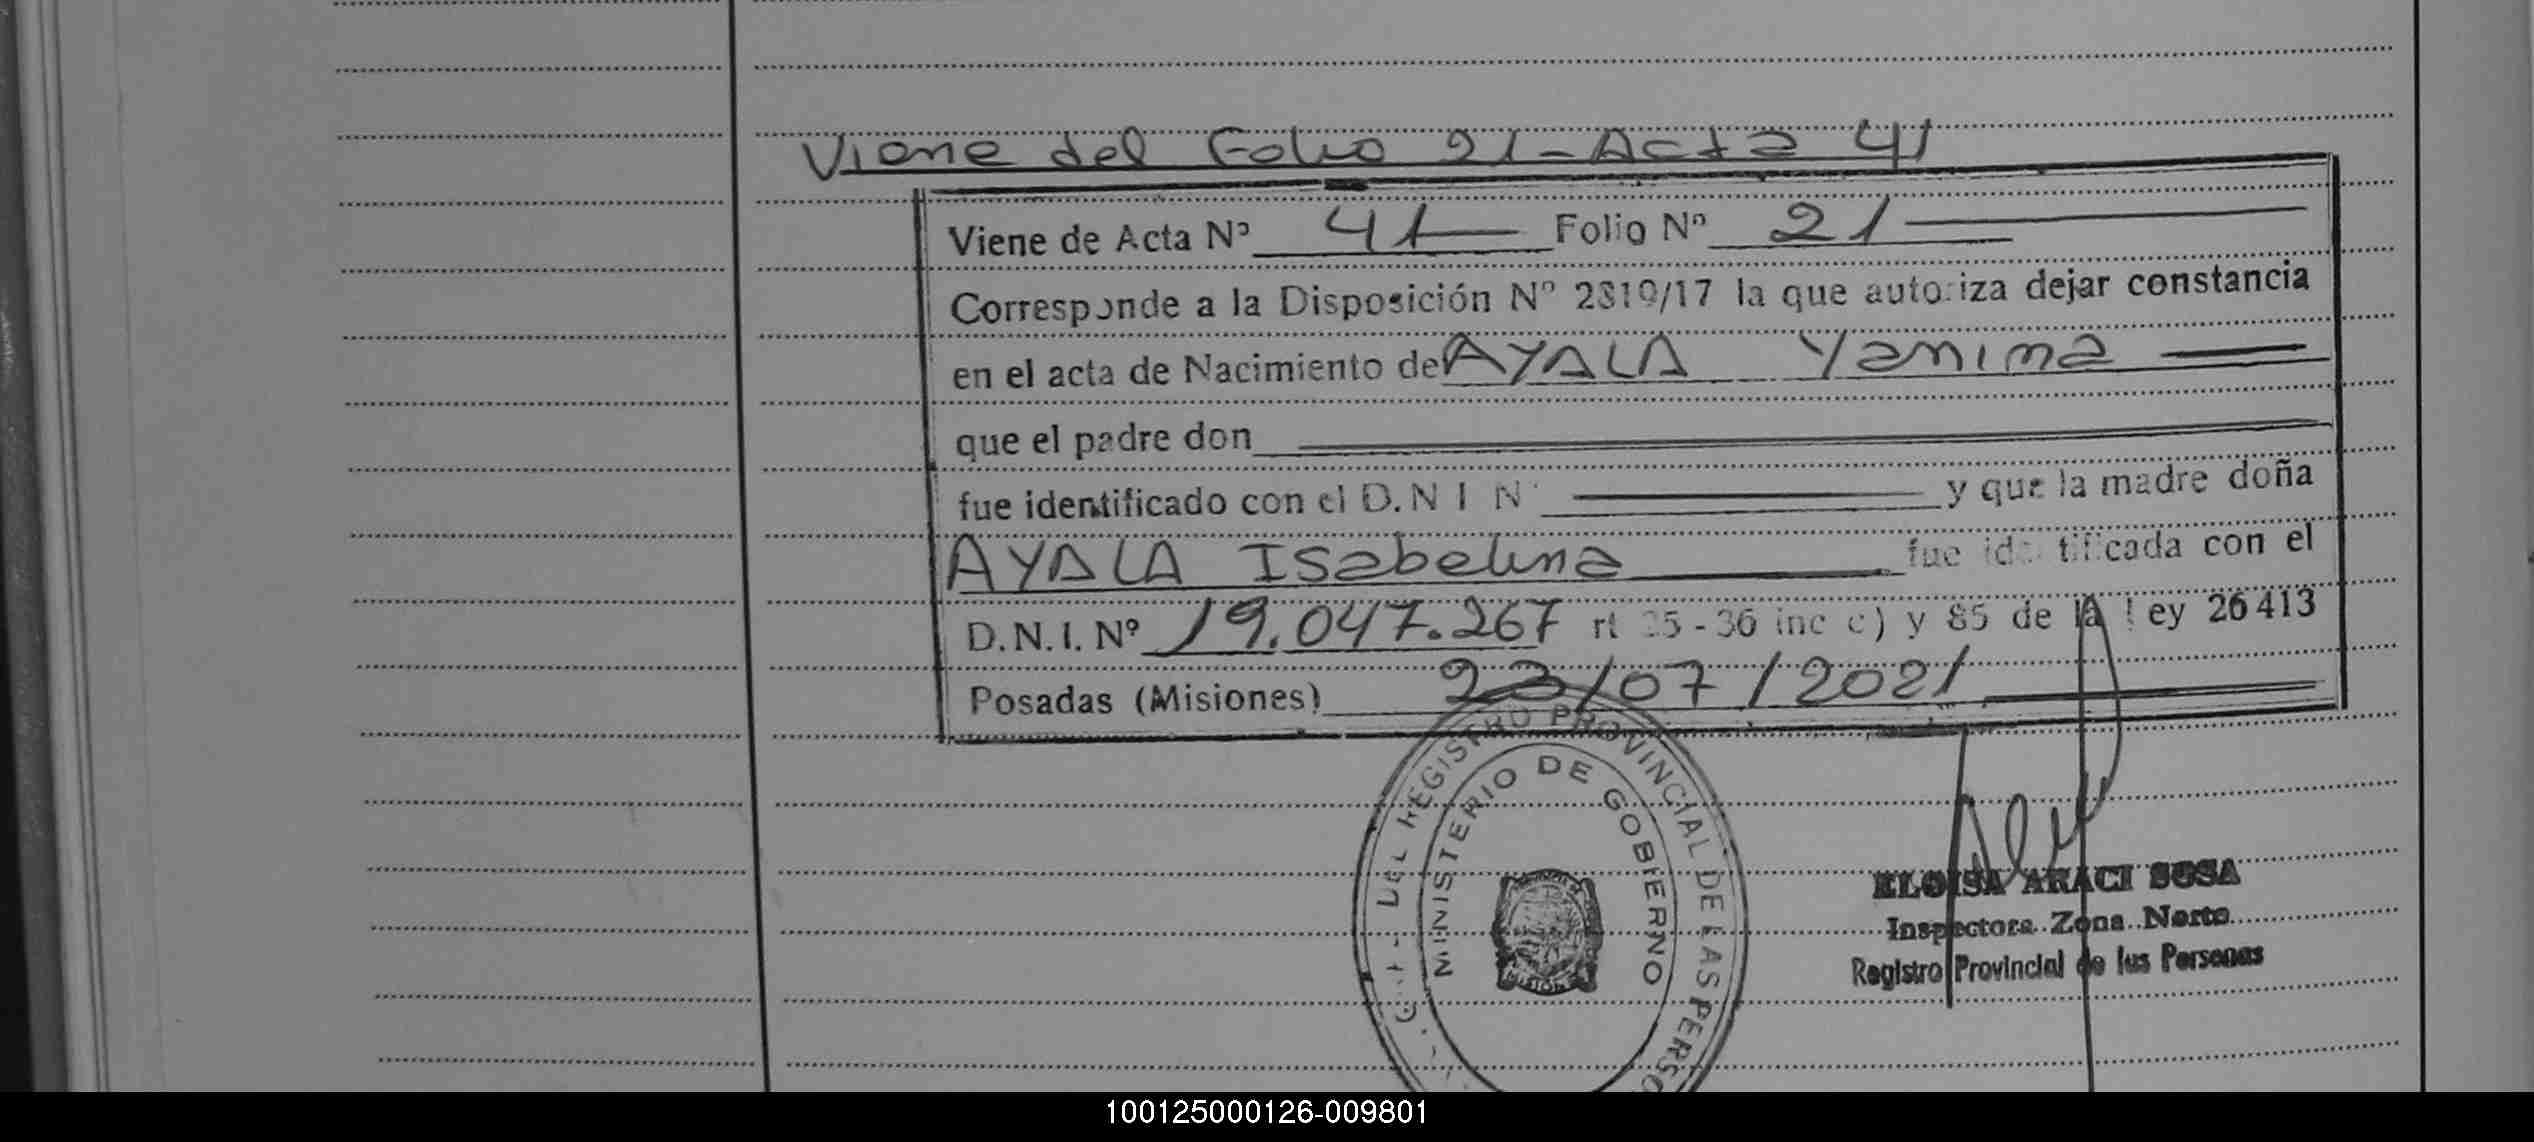 Viene del Folio 21 - Acta 41
Viene de Acta Nº 41 Folio Nº 21
Corresponde a la Disposición Nº 2819/17 la que autoriza dejar constancia
en el acta de Nacimiento de AYALA Yanina
que el padre don
fue identificado con el D.N I N° y que la madre doña
AYALA Isabelina fue identificada con el
D.N.I. Nº 19.047.267 rt 35 - 36 inc c) y 85 de la Ley 26413
Posadas (Misiones) 23/07/2021
DEL REGISTRO PROVINCIAL DE LAS PERSO
MINISTERIO DE GOBIERNO
ELOISA ARACI SOSA
Inspectora Zona Norte
Registro Provincial de las Personas
100125000126-009801